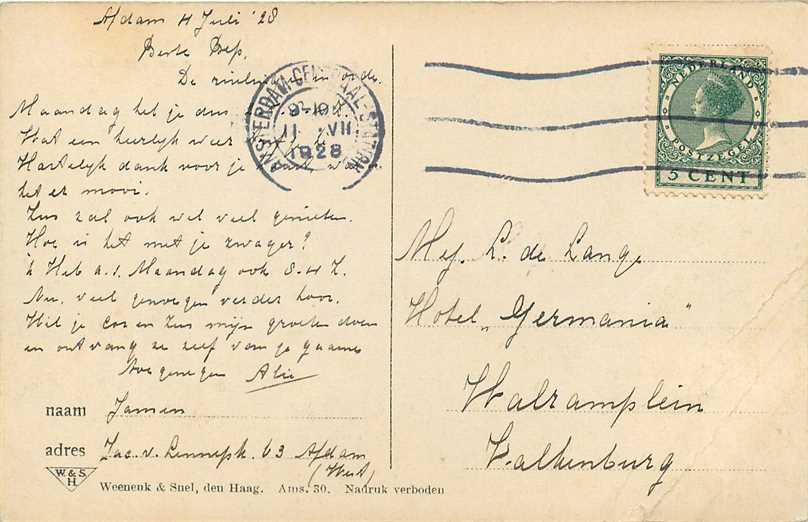 A/dam 11 Juli '28
Beste Bep,
De ringen in orde.
Maandag het je dus
Wat een heerlijk weer
Hartelijk dank voor je kaart, wat
het er mooi.
Zus zal ook wel veel genieten.
Hoe is het met je zwager?
'k Heb a.s. Maandag ook
Nu, veel genoegen verder hoor.
Wil je Cor en Zus mijn groeten doen
en ontvang ze zelf van je gaarne
toegenegen Alie
naam Jansen
adres Jac. v. Lennepk. 63 A/dam
(West)
W. & S.
H.
Weenenk & Snel, den Haag. Ams. 30. Nadruk verboden
AMSTERDAM CENTRAAL-STATION
11 VII
1928
NEDERLAND
POSTZEGEL
5 CENT
Mej. L. de Lange
Hotel „Germania"
Walramplein
Valkenburg